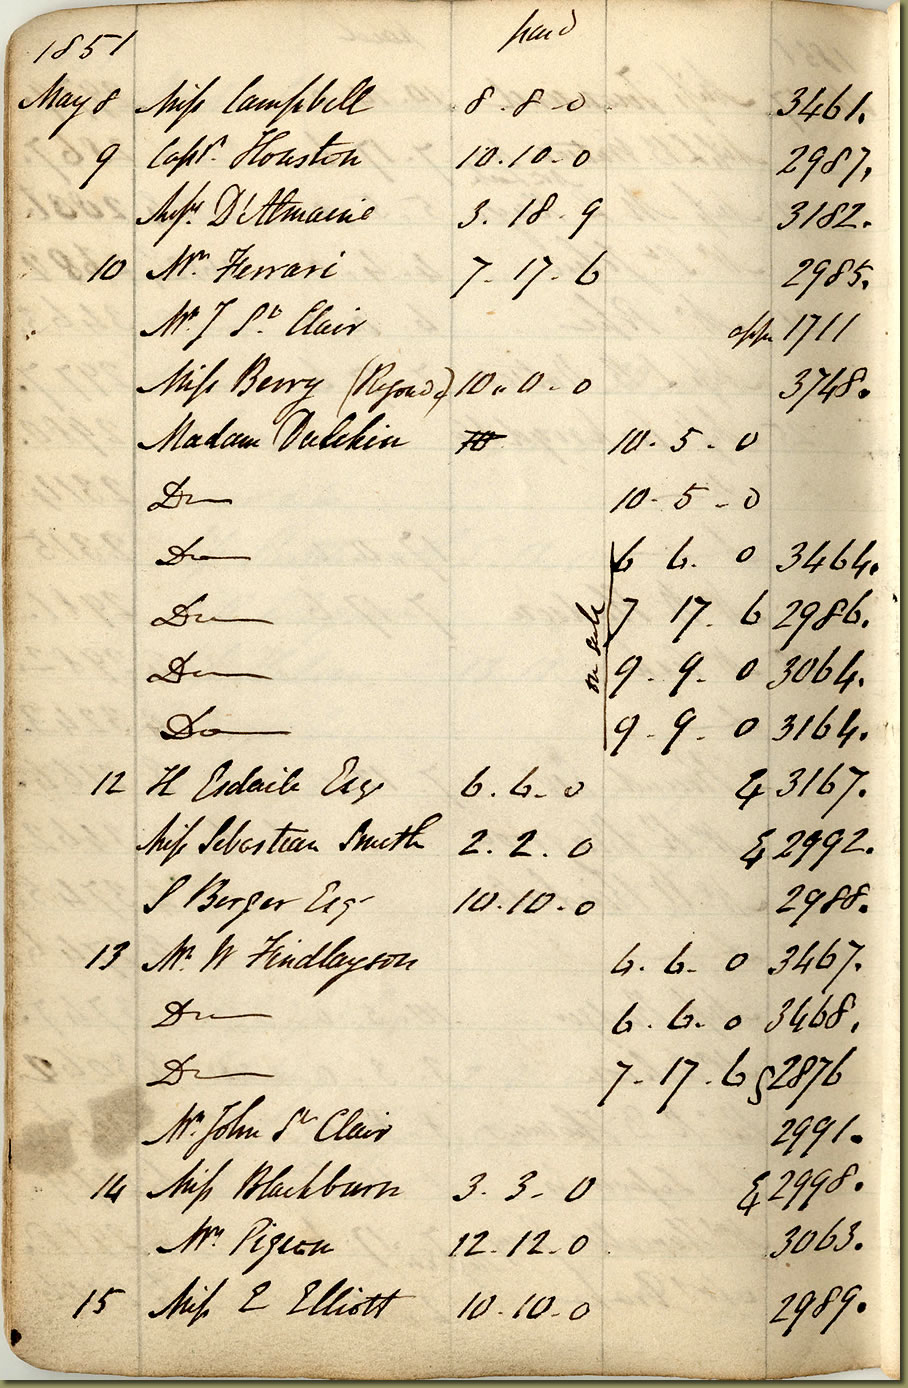 1851 paid
May 8 Miss Campbell 8 . 8 - 0 3461.
9 Capt. Houston 10 . 10 - 0 2987.
Messrs D'Almaine 3 . 18 - 9 3182.
10 Mr. Ferrari 7 - 17 - 6 2985.
Mr. J St. Clair 1711
Miss Berry 10 " 0 - 0 3748.
Madam Dulckin 10 10 - 5 - 0
Do 10 - 5 - 0
Do 6 6. 0 3464.
Do 7 17 . 6 2986.
on sale
Do 9 - 9 - 0 3064.
Do 9 - 9 - 0 3164.
12 H Esdaile Esqr 6 . 6 - 0 3167.
Miss Sebastian Smith 2 . 2 . 0 2992.
S Berger Esqr 10 . 10 - 0 2988.
13 Mr. W Findlayson 6 . 6 - 0 3467.
Do 6 . 6 - 0 3468.
Do 7 - 17 . 6 2876
Mr. John St Clair 2991.
14 Miss Blackburn 3 . 3 - 0 2998.
Mrs Pigeon 12 . 12 - 0 3063.
15 Miss E Elliott 10 . 10 - 0 2989.